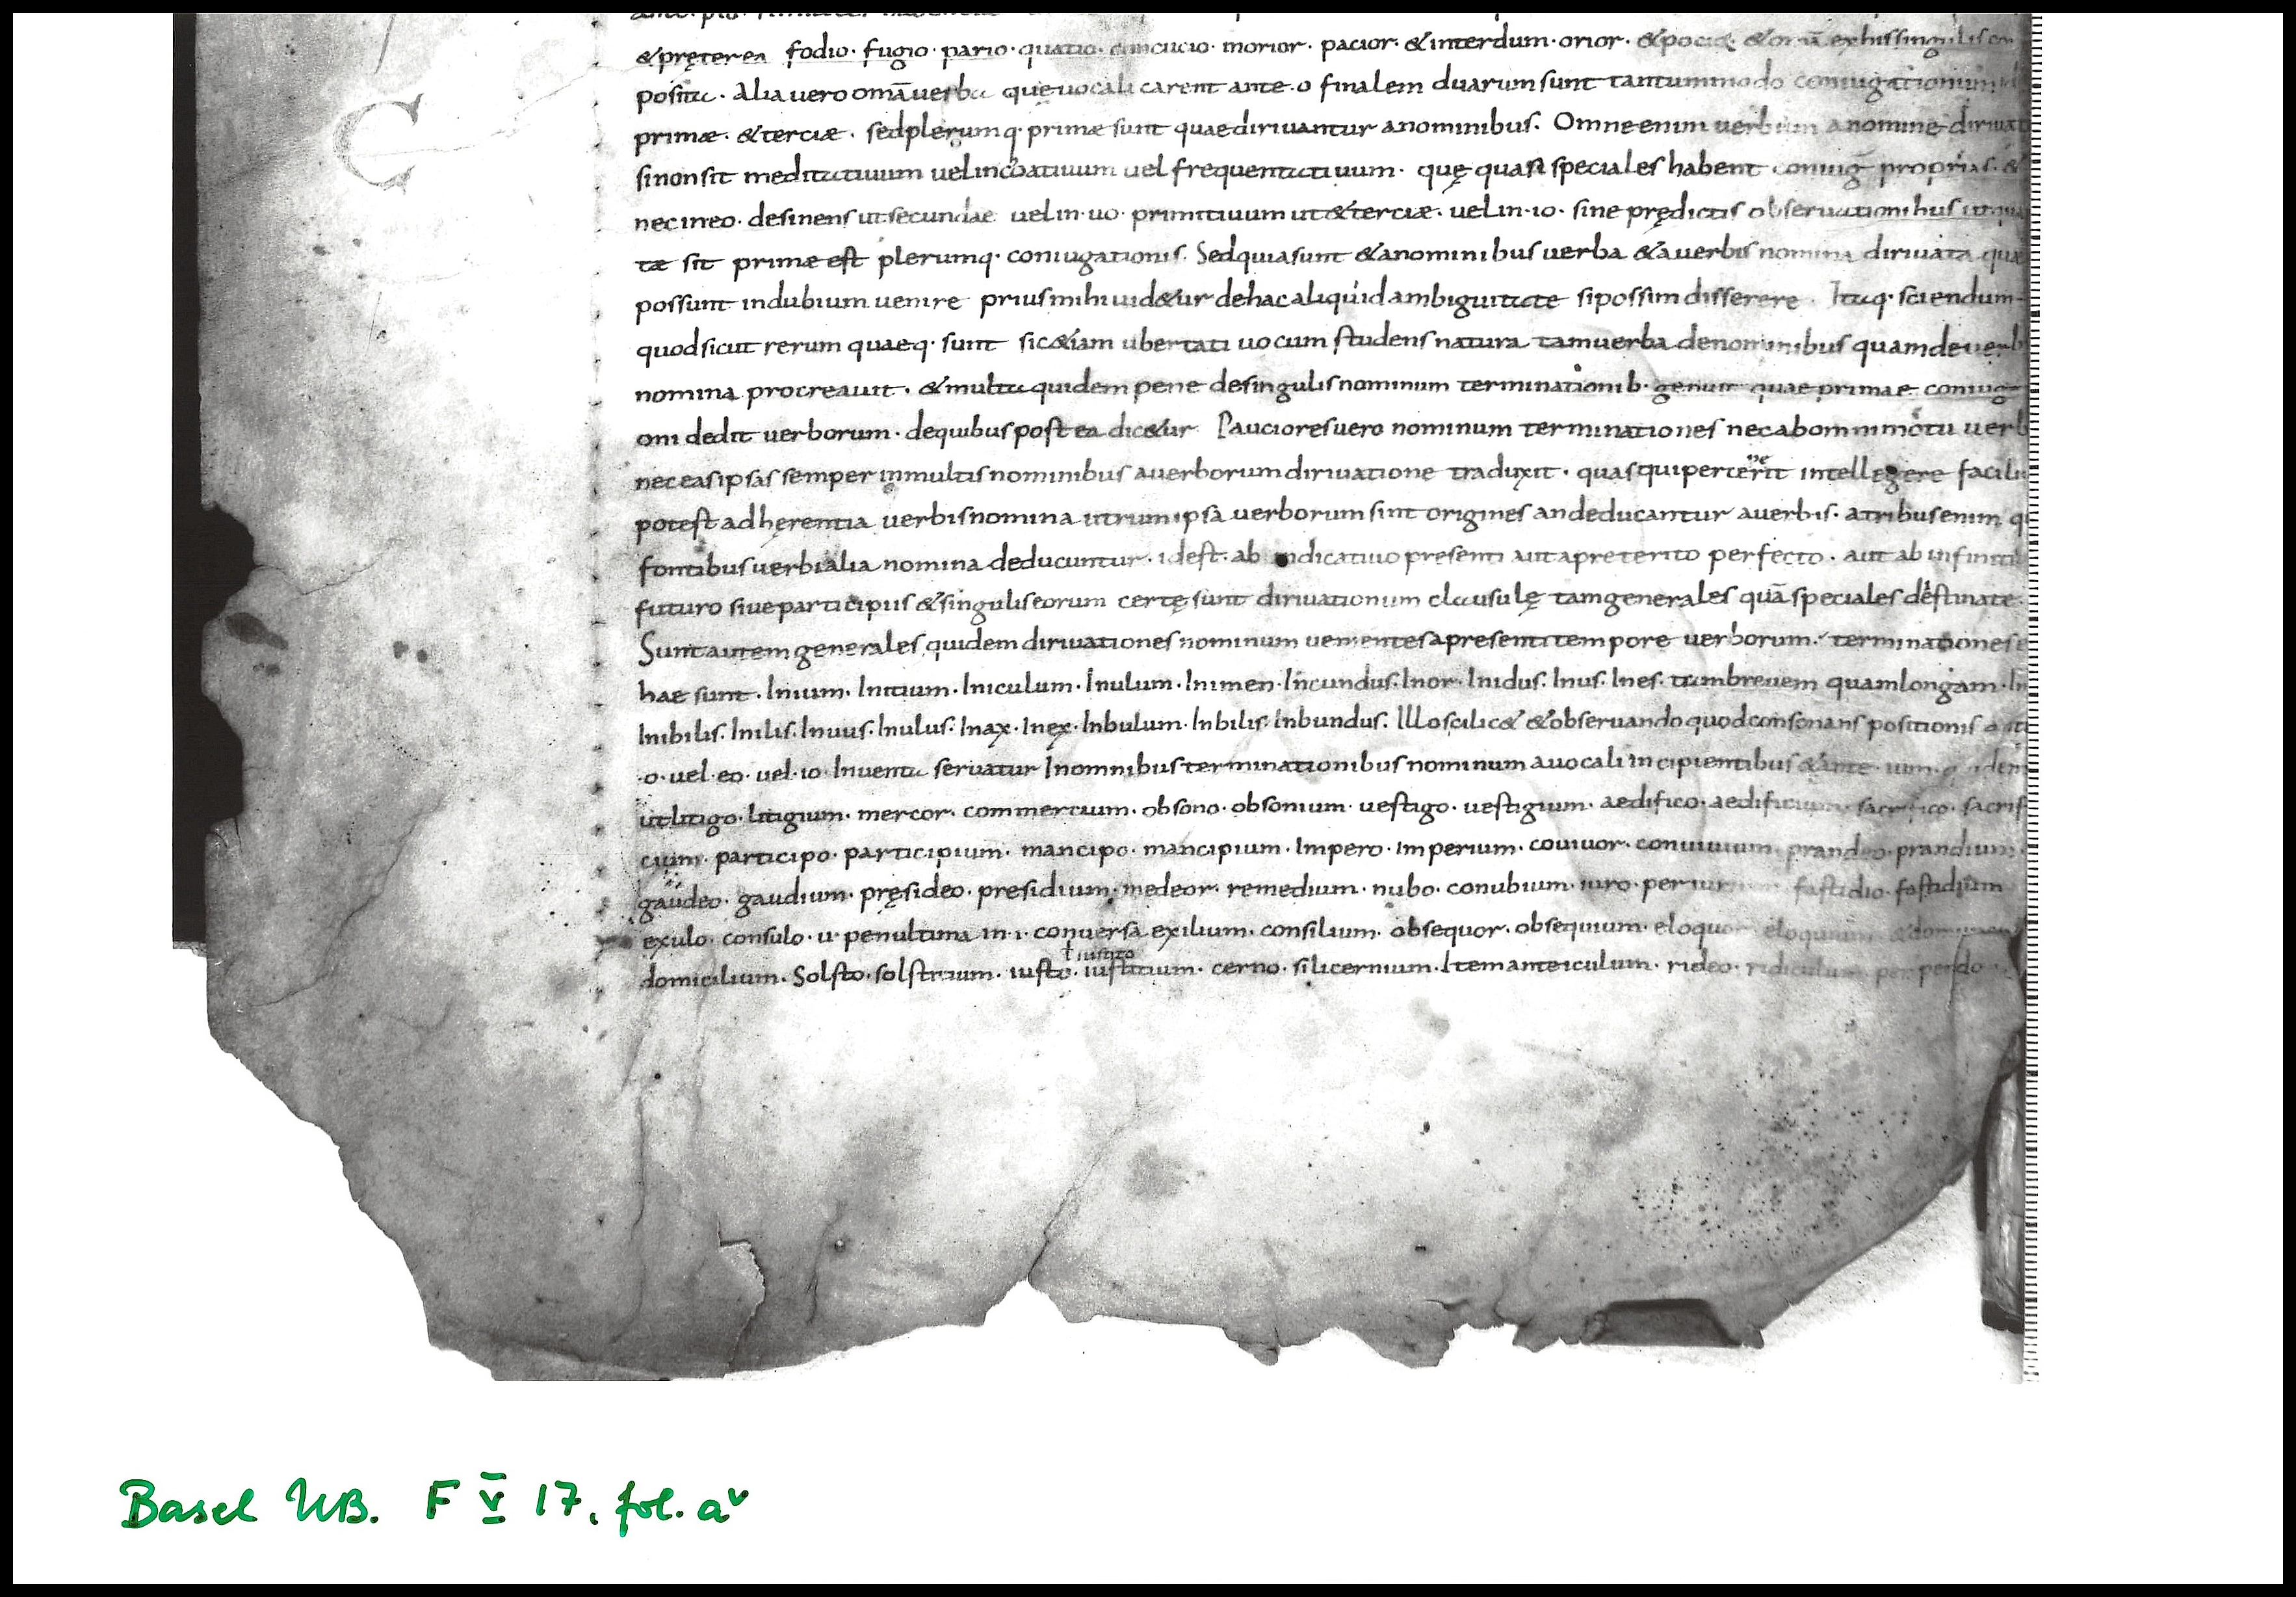 &pręterea fodio· fugio· pario· quatio· concucio· morior· pacior· &interdum· orior· &
posita· Alia uero omāuerba quę uocali carent ante·o finalem duarum sunt tantummodo coniugationum
primæ· &terciæ· sed plerumq· primæ sunt quae diriuantur a nominibus· Omne enim uerbum a nomine diriuat
si non sit meditatiuum uel incoatiuum uel frequentatiuum· quę quasi speciales habent coniug̅ proprias· &
nec in eo· desinens ut secundae uel in·uo· primitiuum ut &terciæ· uel in·io· sine prędictis obseruationibus ut qua
tæ sit primæ est plerumq· coniugationis· Sed quia sunt &a nominibus uerba &a uerbis nomina diriuata quæ
possunt in dubium uenire prius mihi uid&ur de hac aliquid ambiguitate si possim disserere· Itaq· sciendum
quod sicut rerum quaeq· sunt sic &iam ubertati uocum studens natura tam uerba de nominibus quam de uerb
nomina procreauit· &multa quidem pene de singulis nominum terminationib· genuit quae primae coniug
oni dedit uerborum· de quibus post ea dic&ur Pauciores uero nominum terminationes nec ab omni motu uerb
nec eas ipsas semper in multis nominibus a uerborum diriuatione traduxit· quas qui intellegere facili
potest adherentia uerbis nomina utrum ipsa uerborum sint origines an deducantur a uerbis· a tribus enim q
fontibus uerbialia nomina deducuntur· idest· ab indicatiuo presenti aut a preterito perfecto· aut ab infiniti
futuro siue participiis &singulis eorum certę sunt diriuationum clausulę tam generales quā speciales destinate·
Sunt autem generales quidem diriuationes nominum uenientes a presenti tempore uerborum· terminationes e
hae sunt· In ium· In tium· In iculum· In ulum· In imen· In cundus· In or· In idus· In us· In es· tam breuem quam longam· In
In ibilis· In ilis· In uus· In ulus· In ax· In ex· In bulum· In bilis· In bundus· Illo scilic& &obseruando quod consonans positionis ante
·o· uel·eo· uel·io· Inuenta seruatur In omnibus terminationibus nominum a uocali incipientibus &ante· ium· quidem
ut litigo· litigium· mercor· commercium· obsono· obsonium· uestigo· uestigium· aedifico· aedificium· sacrifico· sacrif
cium· participo· participium· mancipo· mancipium· Impero· Imperium· couiuor· conuiuium· prandeo· prandium·
gaudeo· gaudium· pręsideo· presidium· medeor· remedium· nubo· conubium· iuro· periurium fastidio· fastidium
exulo· consulo· u· penultima in·i· conuersa exilium· consilium· obsequor· obsequium· eloquor eloquium
ł iustito
domicilium· Solsto· solstitium· iusto· iustitium· cerno· silicernium· Item ante iculum· rideo· ridiculum
Basel UB. F V 17, fol. aᵛ